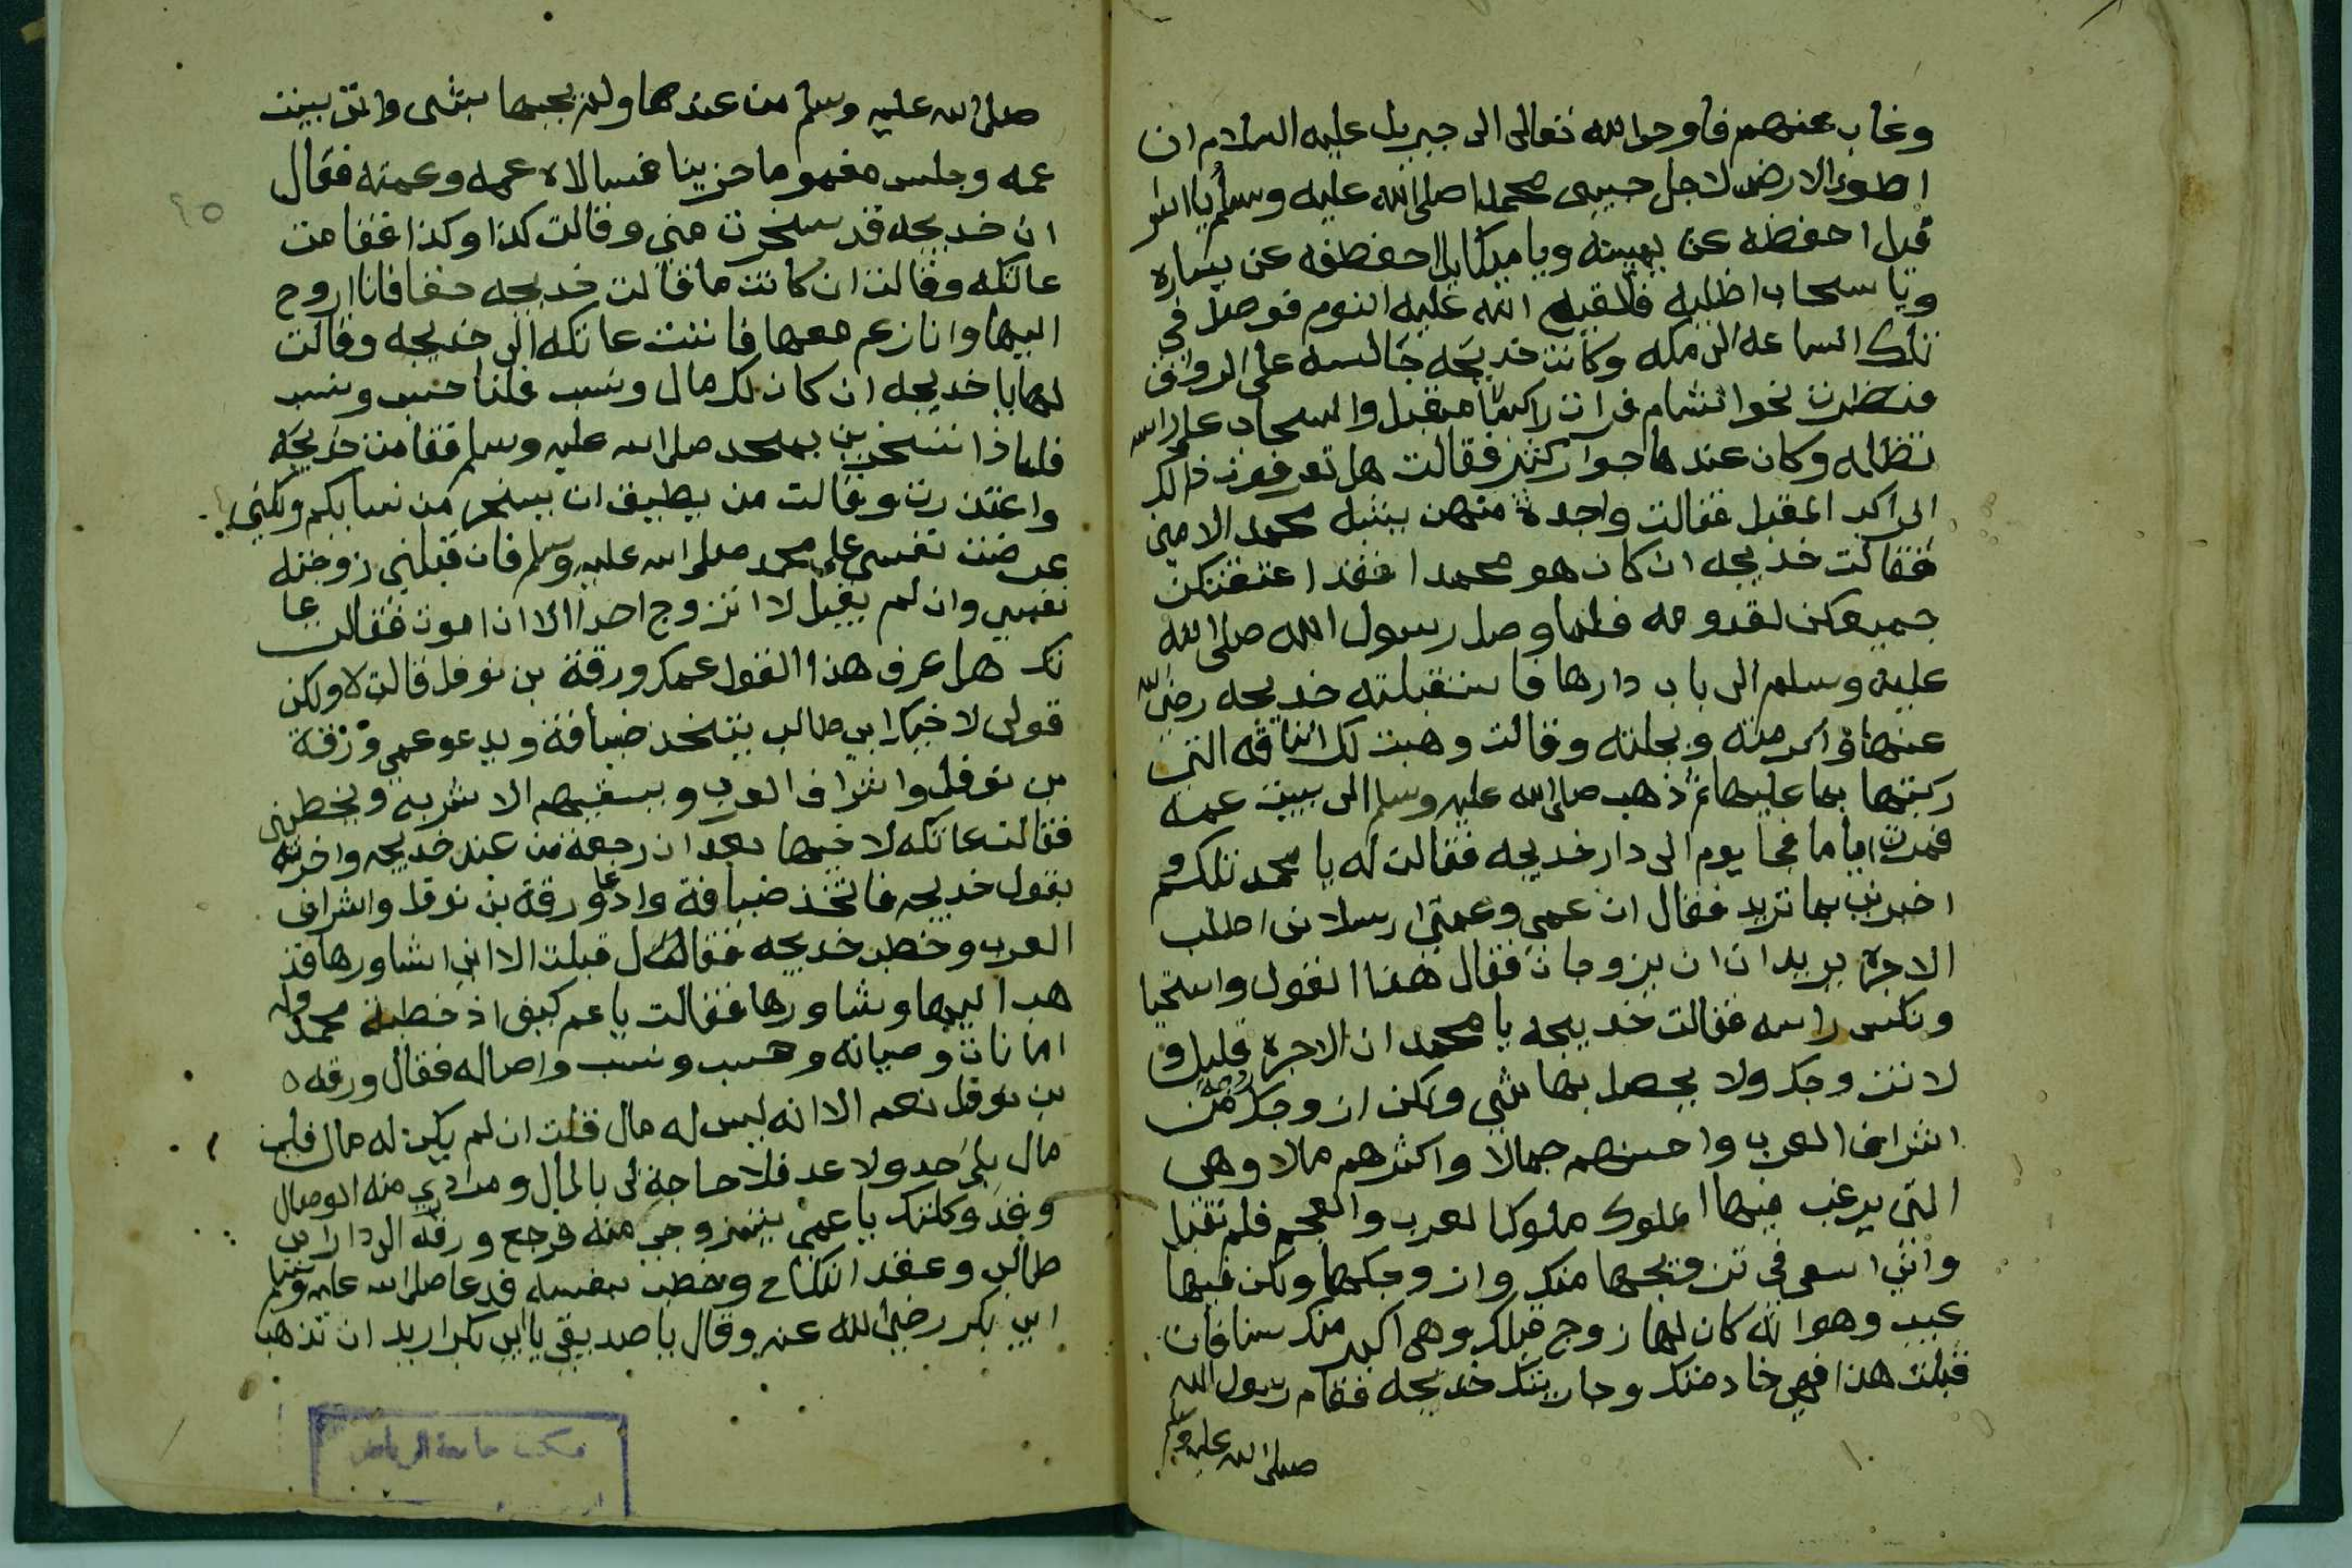 وغاب عنهم فاوحى الله تعالى الى جبريل عليه السلام ان
اطوى الارض لاجل حبيبى محمدا صلى الله عليه وسلم يا اسرا
فيل احفظه عن يمينه ويا ميكايل احفظه عن يساره
ويا سحاب اظليه فلقيهم الله عليه النوم فوصل فى
تلك الساعه الى مكه وكانت خديجه جالسه على الرواق
فنظرت نحو الشام فرات راكبا مقبل والسحاب على راسه
تظله وكان عندها جوار كثير فقالت هل تعرفون ذالك
الراكب المقبل فقالت واحدة منهن يشبه محمد الامين
فقالت خديجه ان كان هو محمدا فقد اعتقتكن
جميعكن لقدومه فلما وصل رسول الله صلى الله
عليه وسلم الى باب دارها فاستقبلته خديجه رضى الله
عنها واكرمته وبجلته وقالت وهبت لك الناقه التى
ركبتها بما عليها ثم ذهب صلى الله عليه وسلم الى بيت عمه
فمرت اياما فجا يوم الى دار خديجه فقالت له يا محمد تكلم و
اخبرنى بما تريد فقال ان عمى وعمتى ارسلانى اطلب
الاجرة يريدان ان يزوجانى فقال هذا القول واستحيا
ونكس راسه فقالت خديجه يا محمد ان الاجره قليل و
لا تتزوجك ولا يحصل بها شى ولكن ازوجك زوجه من
اشراف العرب واحسنهم جمالا واكثرهم مالا وهى
التى يرغب فيها الملوك ملوك العرب والعجم فلم تقبل
وانى اسعى فى تزويجها منك وازوجكها ولكن فيها
عيب وهو انه كان لها زوج قبلك وهى اكبر منك سنا فان
قبلت هذا فهى خادمتك وجاريتك خديجه فقام رسول الله
صلى الله عليه وسلم
صلى الله عليه وسلم من عندها ولم يجبها بشى واتى بيت
عمه وجلس مغموما حزينا فسالاه عمه وعمته فقال
ان خديجه قد سخرت منى وقالت كذا وكذا فقامت
عاتكه وقالت ان كانت ما قالت خديجه حقا فانا اروح
اليها وانازعم معها فاتت عاتكه الى خديجه وقالت
لها يا خديجه ان كان لك مال ونسب فلنا حسب ونسب
فلماذا تسخرين بمحمد صلى الله عليه وسلم فقامت خديجه
واعتذرت وقالت من يطيق ان يسخر من نسابكم ولكنى
عرضت نفسى على محمد صلى الله عليه وسلم فان قبلنى زوجته
نفسى وان لم يقبل لا اتزوج احدا الا ان اموت فقالت عا
تكه هل عرف هذا القول عمك ورقة بن نوفل قالت لا ولكن
قولى لاخيك ابى طالب يتخذ ضيافة ويدعو عمى ورقة
بن نوفل واشراف العرب ويسقيهم الاشربه ويخطبنى
فقالت عاتكه لاخيها بعد ان رجعة من عند خديجه واخبرته
بقول خديجه فاتخذ ضيافة وادعا ورقة بن نوفل واشراف
العرب وخطب خديجه فقال قبلت الا انى اشاورها فذ
هب اليها وشاورها فقالت يا عم كيف اذ خطبة محمد وله
امانات وصيانه وحسب ونسب واصاله فقال ورقه
بن نوفل نعم الا انه ليس له مال قلت ان لم يكن له مال فلى
مال بلا حد ولا عد فلا حاجة لى بالمال ومرادى منه الوصال
وقد وكلتك يا عمى بتزوجى منه فرجع ورقه الى دار ابى
طالب وعقد النكاح وخطب بنفسه فدعا صلى الله عليه وسلم
ابى بكر رضى الله عنه وقال يا صديقى يا ابى بكر اريد ان تذهب
٩٥
مكتبة جامعة الرياض